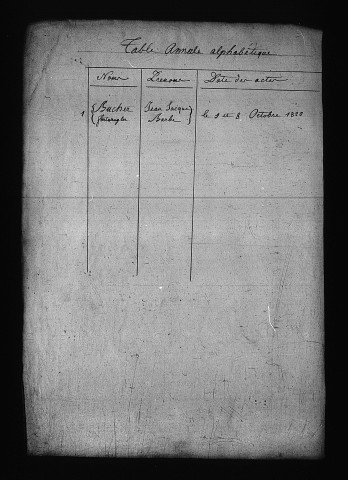 Table Annale alphabétique
Noms Prénoms Date des actes
1 Bucher Jean Jacques le 1 et 8 Octobre 1822